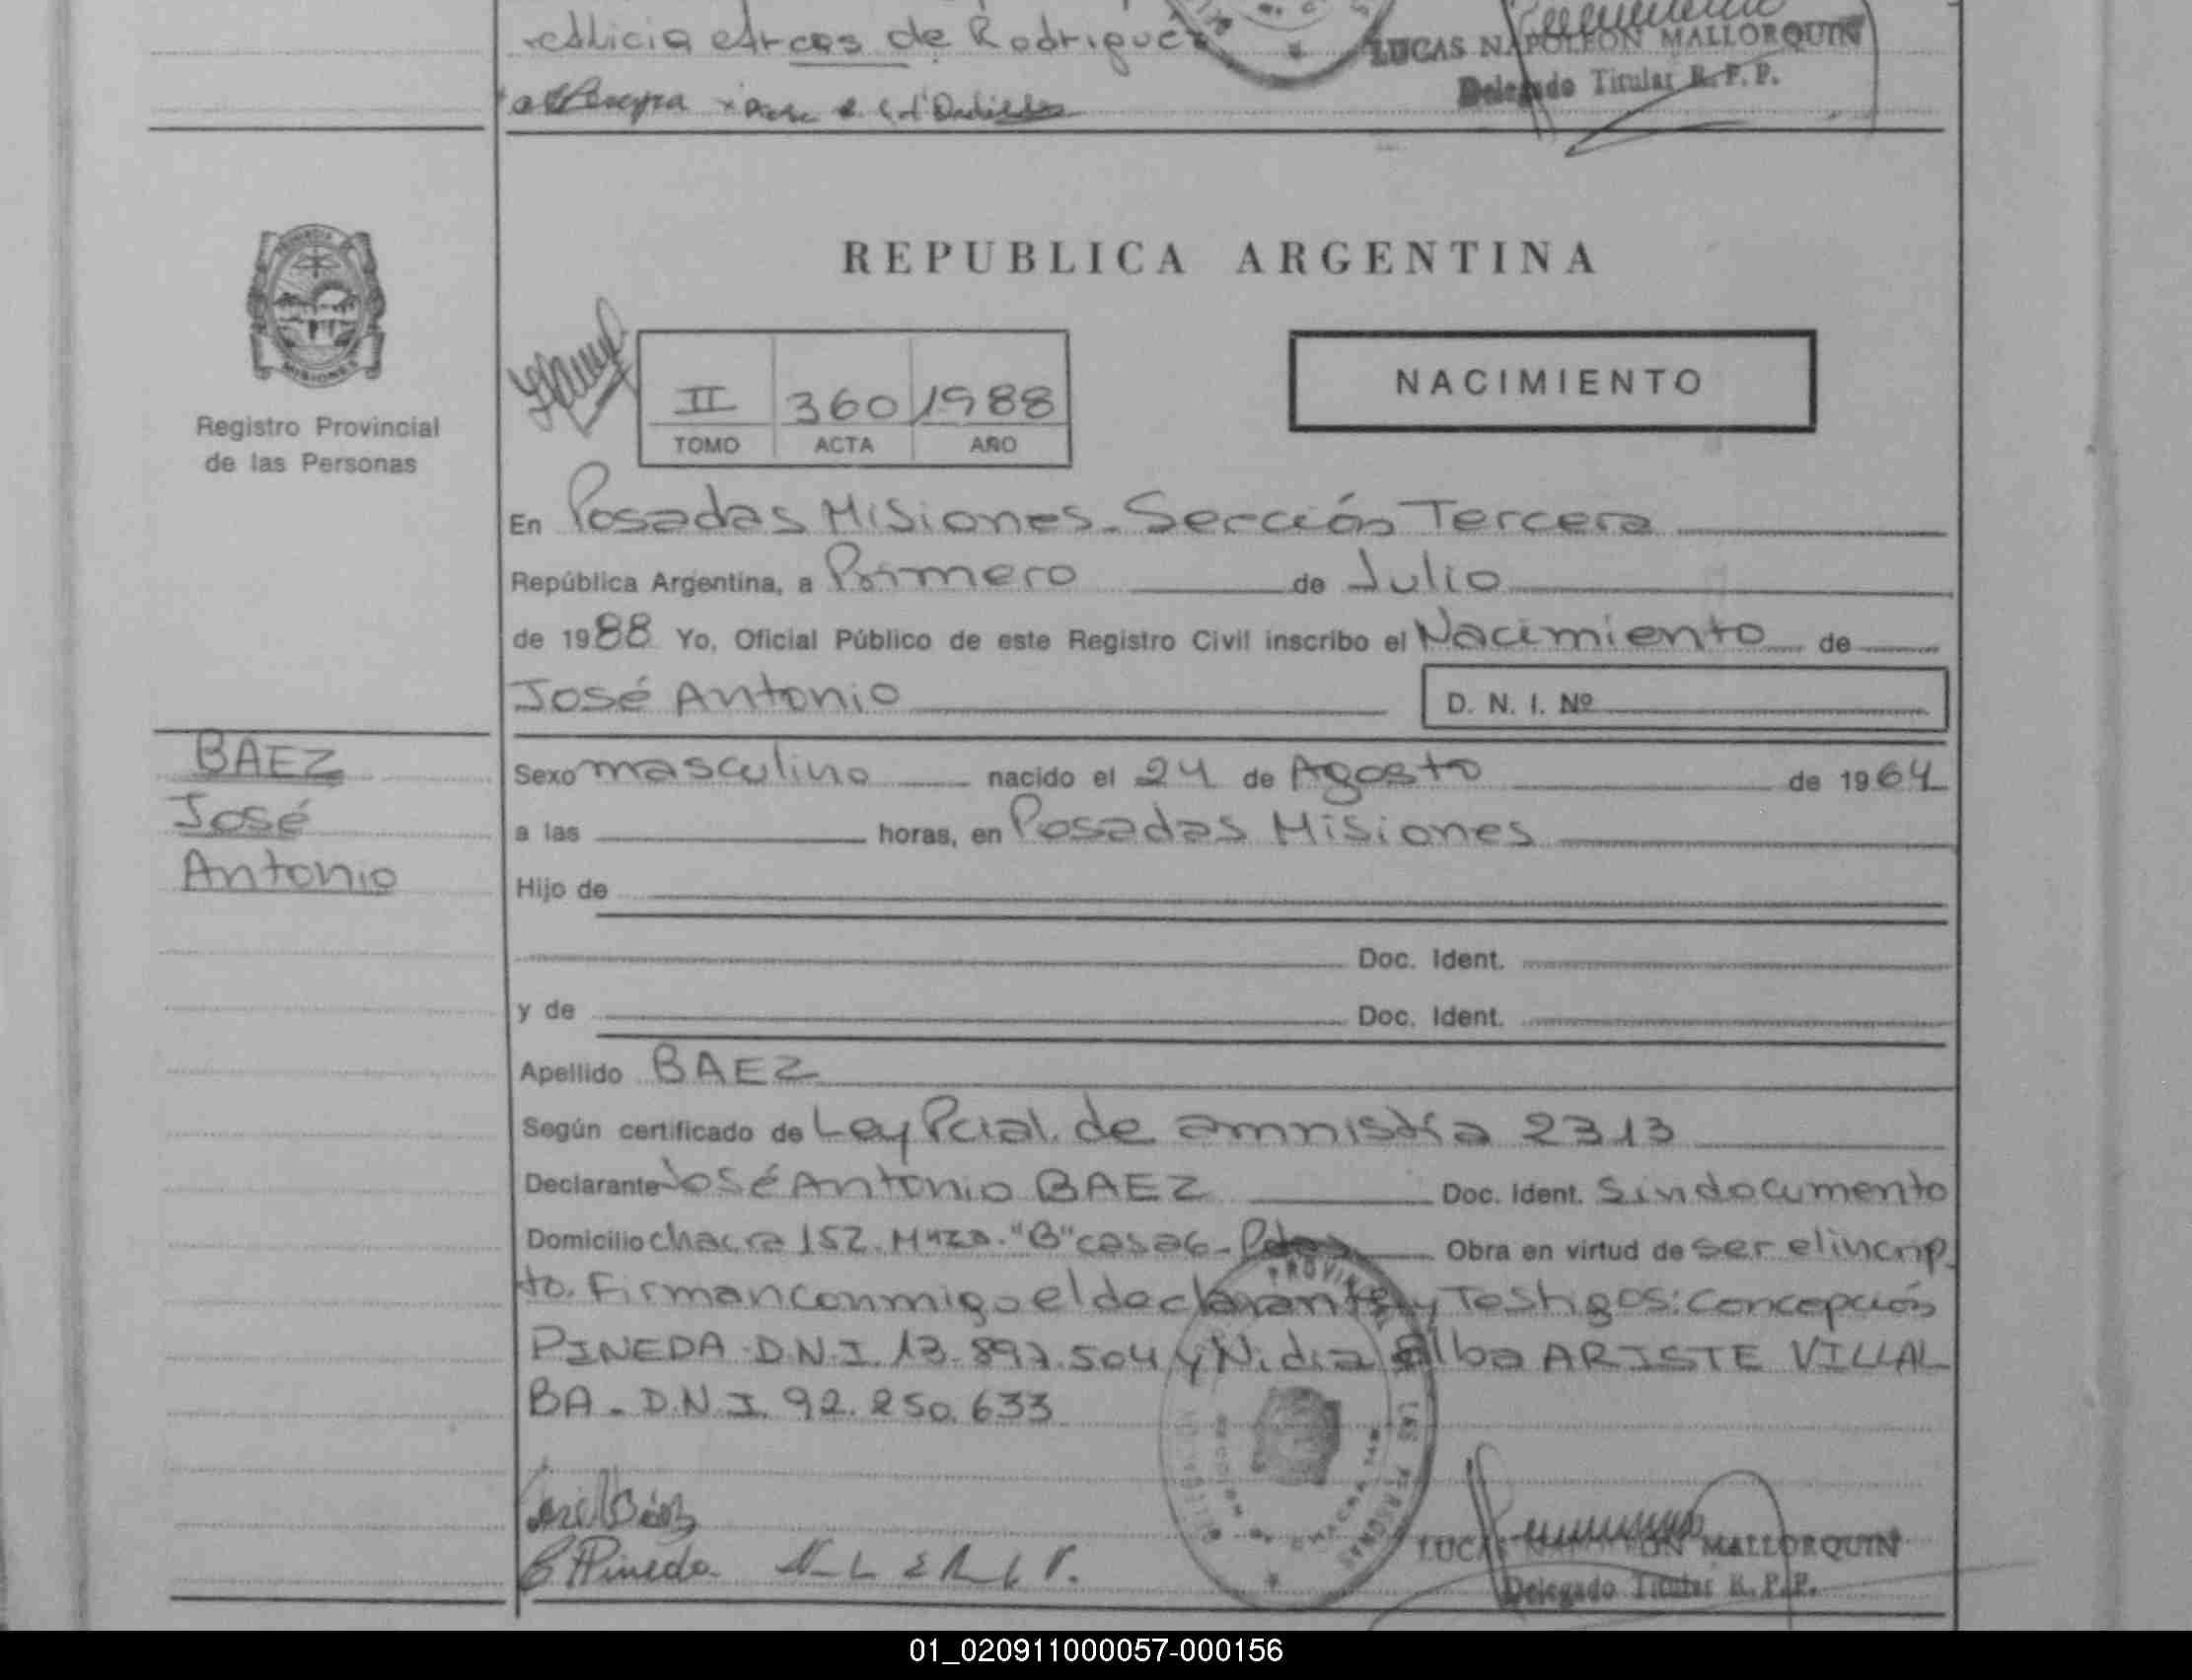 Alicia Arcos de Rodriguez
LUCAS NAPOLEON MALLORQUIN
Delegado Titular R.P.P.
PROVINCIA
MISIONES
Registro Provincial
de las Personas
REPUBLICA ARGENTINA
II 360 1988
TOMO ACTA AÑO
NACIMIENTO
En Posadas Misiones - Sección Tercera
República Argentina, a Primero de Julio
de 1988 Yo, Oficial Público de este Registro Civil inscribo el Nacimiento de
José Antonio D. N. I. Nº
BAEZ
José
Antonio
Sexo masculino nacido el 24 de Agosto de 1964
a las horas, en Posadas Misiones
Hijo de
Doc. Ident.
y de Doc. Ident.
Apellido BAEZ
Según certificado de Ley Pcial. de amnistía 2313
Declarante José Antonio BAEZ Doc. Ident. Sin documento
Domicilio chacra 152. Mnza. "B" casa 6 - Pdas Obra en virtud de ser el incrip
to. Firman conmigo el declarante y Testigos: Concepción
PINEDA D.N.I. 13.897.504 y Nidia Alba ARISTE VILLAL
BA - D.N.I. 92.250.633
PROVINCIAL
LAS PERSONAS
José Báez
Pineda
LUCAS NAPOLEON MALLORQUIN
Delegado Titular R.P.P.
01_020911000057-000156